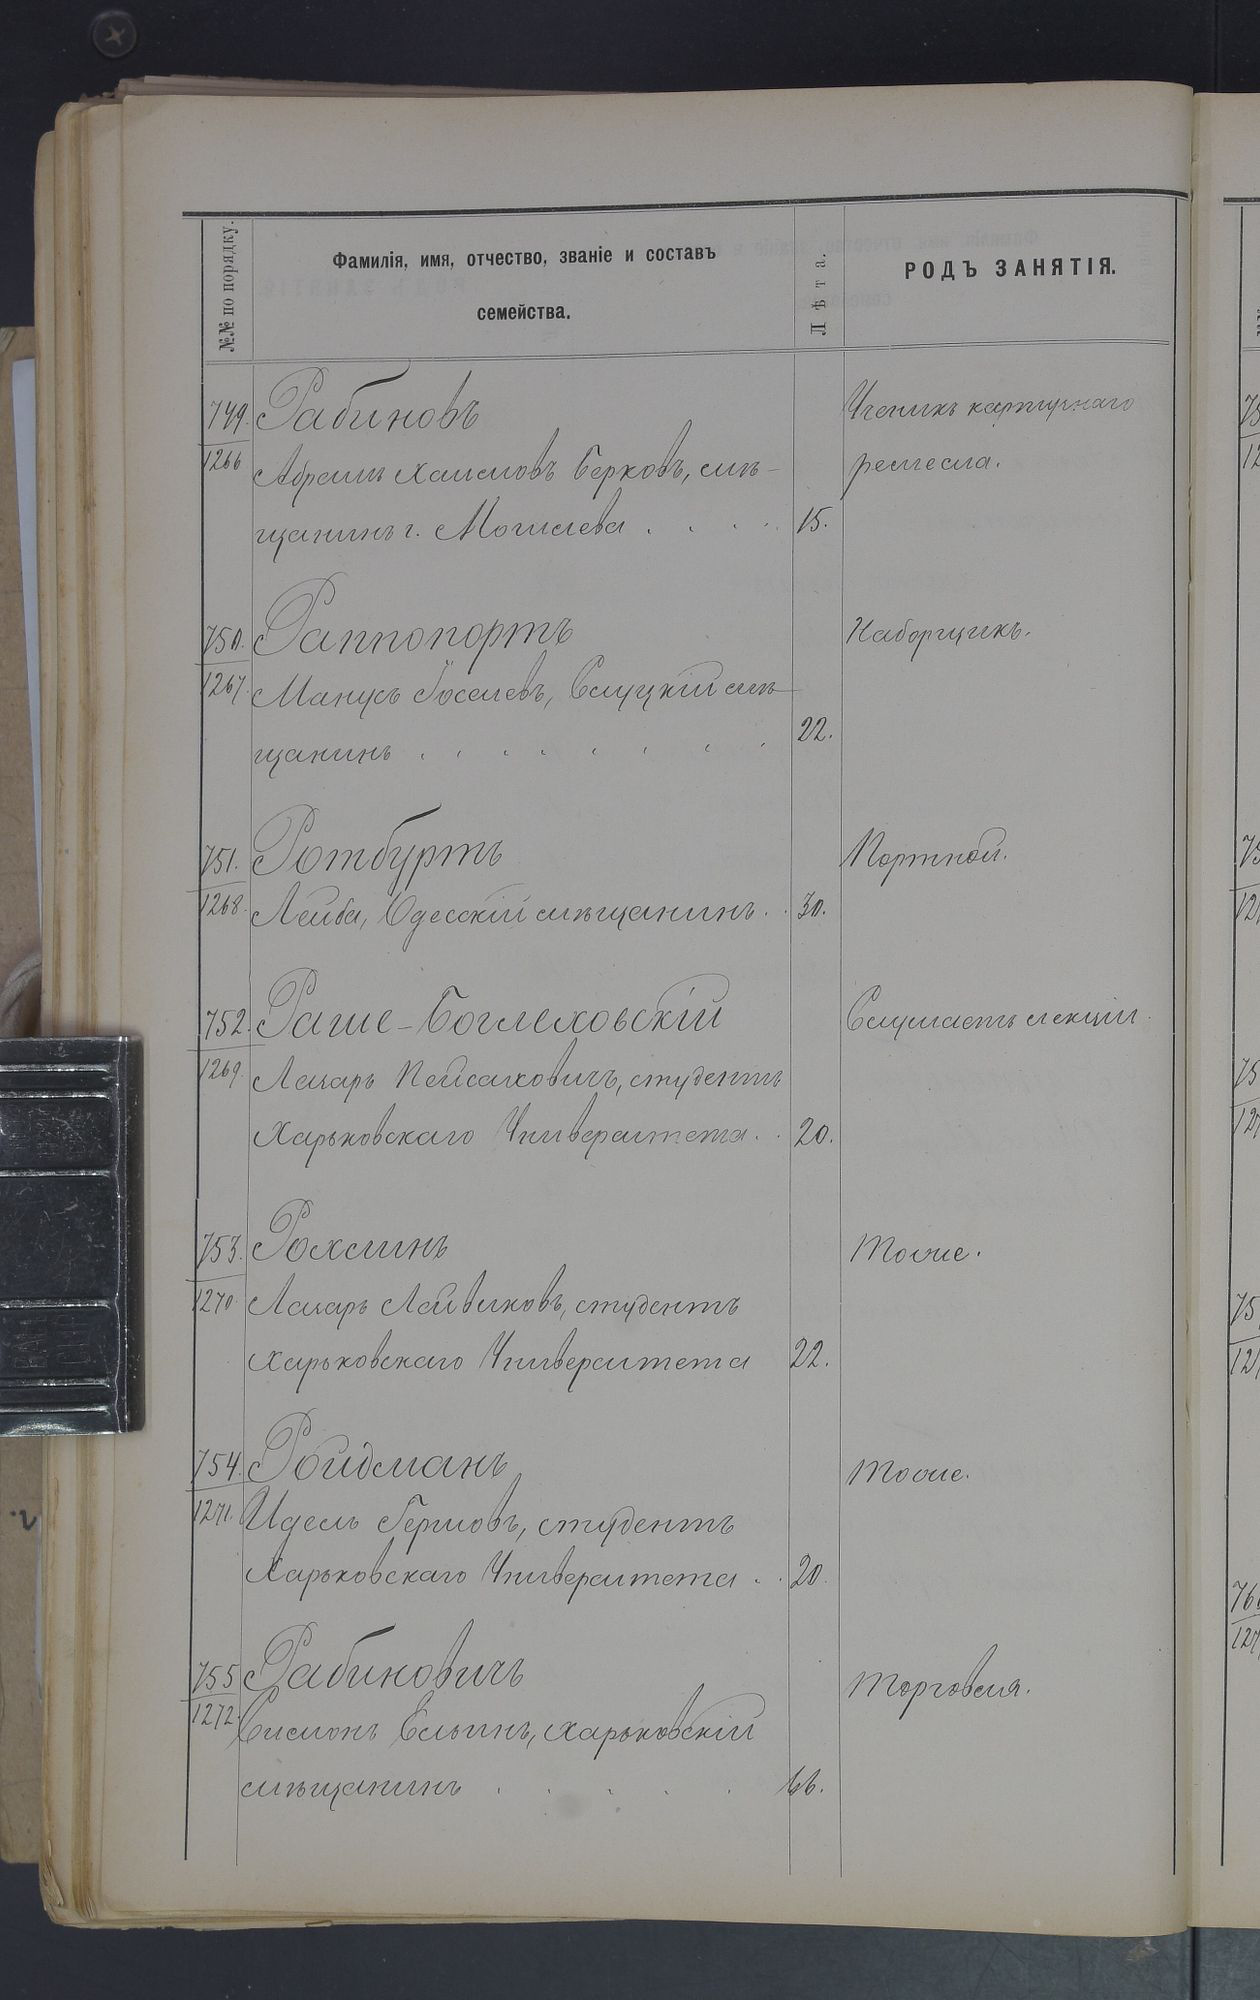 №№ по порядку.
Фамилія, имя, отчество, званіе и составъ
семейства.
Лѣта.
РОДЪ ЗАНЯТІЯ.
749. Рабиновъ Ученикъ картузнаго
1266 Абрамъ Хаимовъ Берковъ, мѣ- ремесла.
щанинъ г. Могилева . . . . 15.
750. Раппопортъ Наборщикъ.
1267. Манусъ Іоселевъ, Слуцкій мѣ-
щанинъ . . . . . . . . 22.
751. Ротбуртъ Портной.
1268. Лейба, Одесскій мѣщанинъ . . 30.
752. Раше-Боглеховскій Слушаетъ лекціи.
1269. Лазарь Пейсаховичъ, студентъ
Харьковскаго Университета . . 20.
753. Рохлинъ Тоже.
1270. Лазарь Лейвиковъ, студентъ
Харьковскаго Университета 22.
754. Ройдманъ Тоже.
1271. Идель Гершовъ, студентъ
Харьковскаго Университета . . 20
755 Рабиновичъ Торговля.
1272. Симонъ Ельинъ, Харьковскій
мѣщанинъ . . . . . 66.